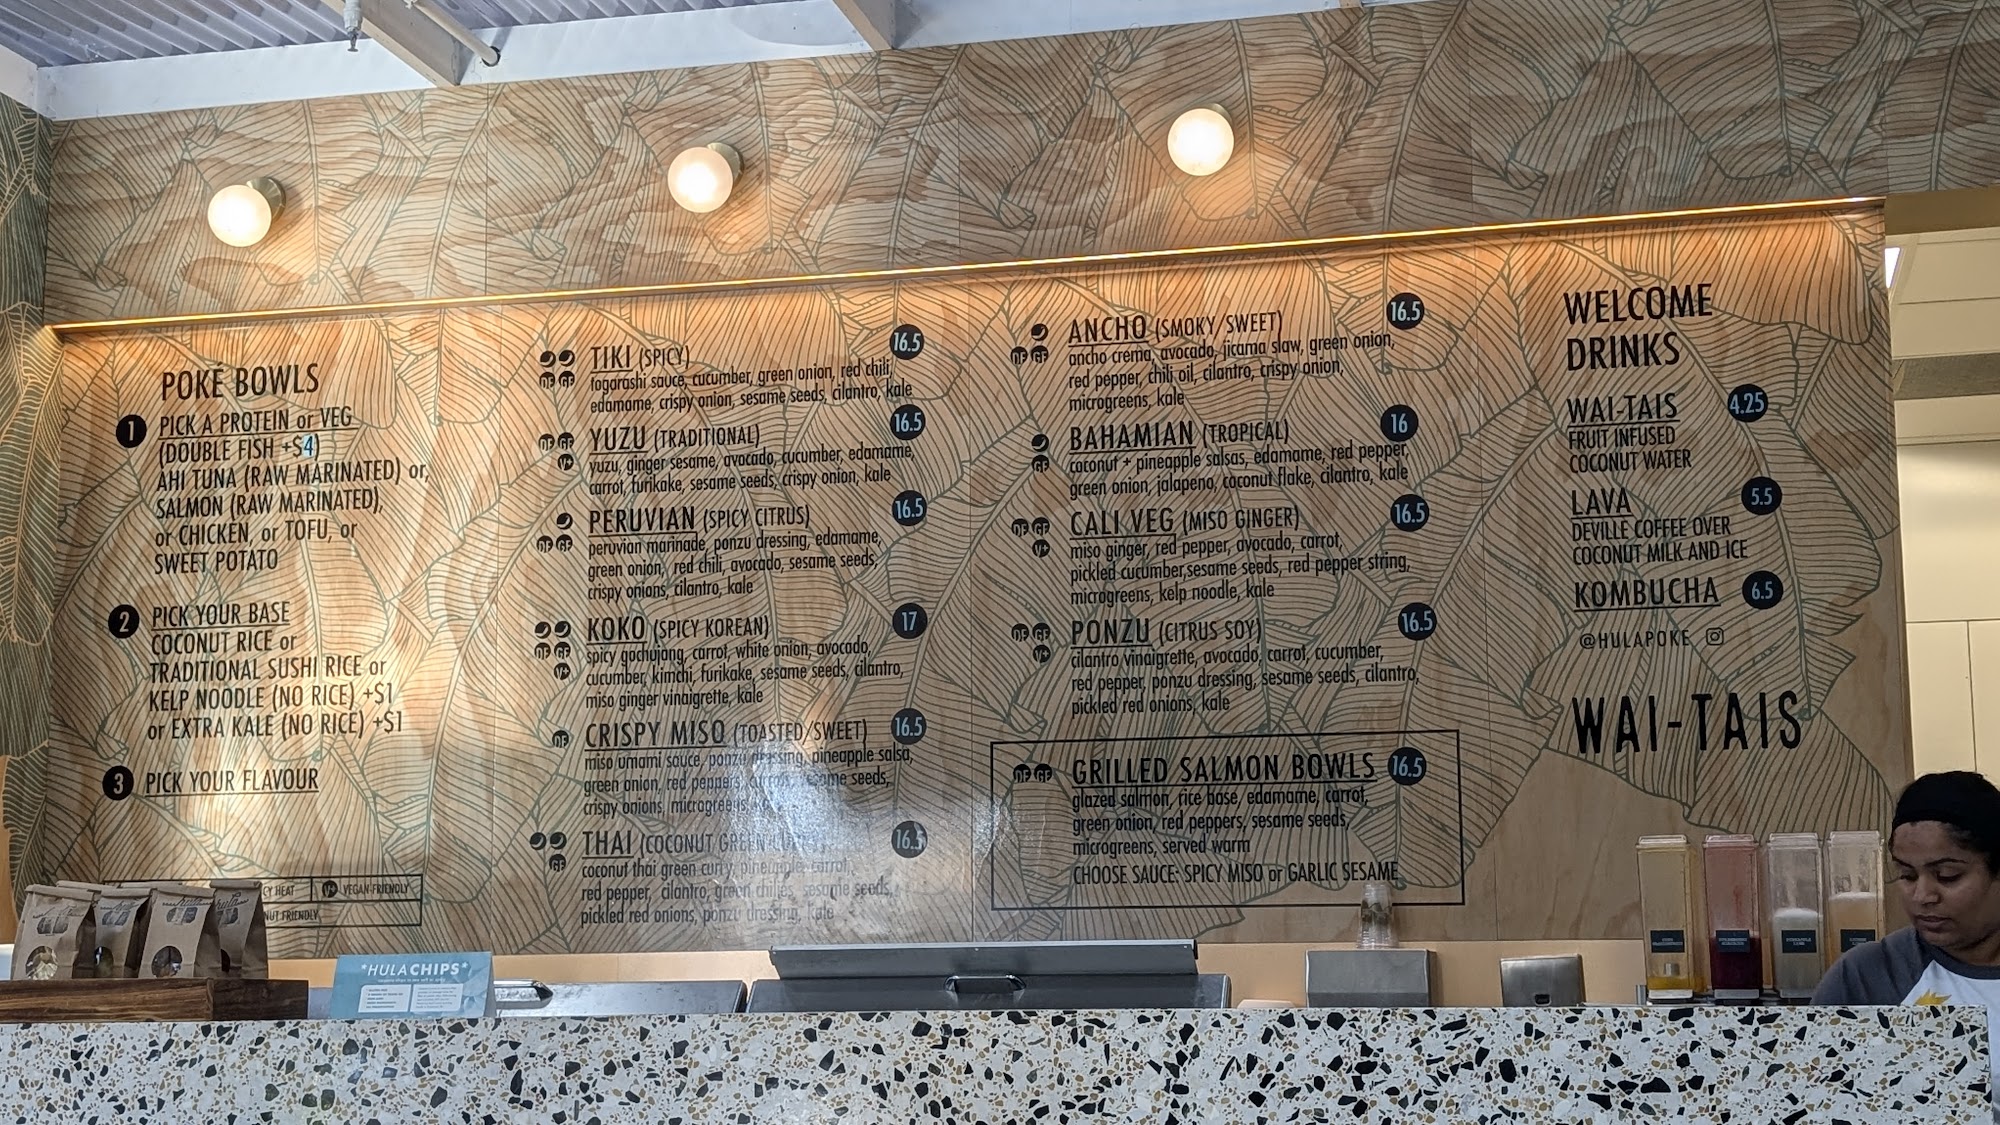 POKÉ BOWLS
1 PICK A PROTEIN or VEG
(DOUBLE FISH +$4)
AHI TUNA (RAW MARINATED) or,
SALMON (RAW MARINATED),
or CHICKEN, or TOFU, or
SWEET POTATO
2 PICK YOUR BASE
COCONUT RICE or
TRADITIONAL SUSHI RICE or
KELP NOODLE (NO RICE) +$1
or EXTRA KALE (NO RICE) +$1
3 PICK YOUR FLAVOUR
CY HEAT V+ VEGAN-FRIENDLY
NUT FRIENDLY
*HULACHIPS*
TIKI (SPICY) 16.5
DF GF togarashi sauce, cucumber, green onion, red chili,
edamame, crispy onion, sesame seeds, cilantro, kale
DF GF YUZU (TRADITIONAL) 16.5
V+ yuzu, ginger sesame, avocado, cucumber, edamame,
carrot, furikake, sesame seeds, crispy onion, kale
PERUVIAN (SPICY CITRUS) 16.5
DF GF peruvian marinade, ponzu dressing, edamame,
green onion, red chili, avocado, sesame seeds,
crispy onions, cilantro, kale
KOKO (SPICY KOREAN) 17
DF GF spicy gochujang, carrot, white onion, avocado,
V+ cucumber, kimchi, furikake, sesame seeds, cilantro,
miso ginger vinaigrette, kale
DF CRISPY MISO (TOASTED/SWEET) 16.5
miso umami sauce, ponzu dressing, pineapple salsa,
green onion, red peppers, sesame seeds,
crispy onions, microgreens,
THAI (COCONUT GREEN CURRY) 16.5
GF coconut thai green curry, pineapple, carrot,
red pepper, cilantro, green chilies, sesame seeds,
pickled red onions, ponzu dressing, kale
ANCHO (SMOKY/SWEET) 16.5
DF GF ancho crema, avocado, jicama slaw, green onion,
red pepper, chili oil, cilantro, crispy onion,
microgreens, kale
BAHAMIAN (TROPICAL) 16
GF coconut + pineapple salsas, edamame, red pepper,
green onion, jalapeno, coconut flake, cilantro, kale
DF GF CALI VEG (MISO GINGER) 16.5
V+ miso ginger, red pepper, avocado, carrot,
pickled cucumber,sesame seeds, red pepper string,
microgreens, kelp noodle, kale
DF GF PONZU (CITRUS SOY) 16.5
V+ cilantro vinaigrette, avocado, carrot, cucumber,
red pepper, ponzu dressing, sesame seeds, cilantro,
pickled red onions, kale
DF GF GRILLED SALMON BOWLS 16.5
glazed salmon, rice base, edamame, carrot,
green onion, red peppers, sesame seeds,
microgreens, served warm
CHOOSE SAUCE: SPICY MISO or GARLIC SESAME
WELCOME
DRINKS
WAI-TAIS 4.25
FRUIT INFUSED
COCONUT WATER
LAVA 5.5
DEVILLE COFFEE OVER
COCONUT MILK AND ICE
KOMBUCHA 6.5
@HULAPOKE
WAI-TAIS